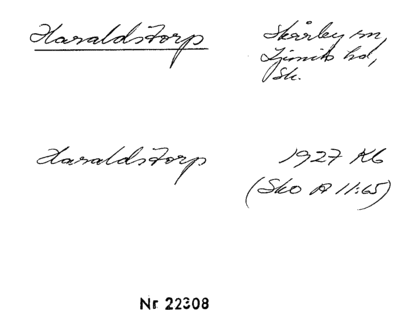 Haraldstorp
Skårby sn,
Ljunits hd,
Sk.
Haraldstorp
1927 Kb
(Sko A 11:65)
Nr 22308